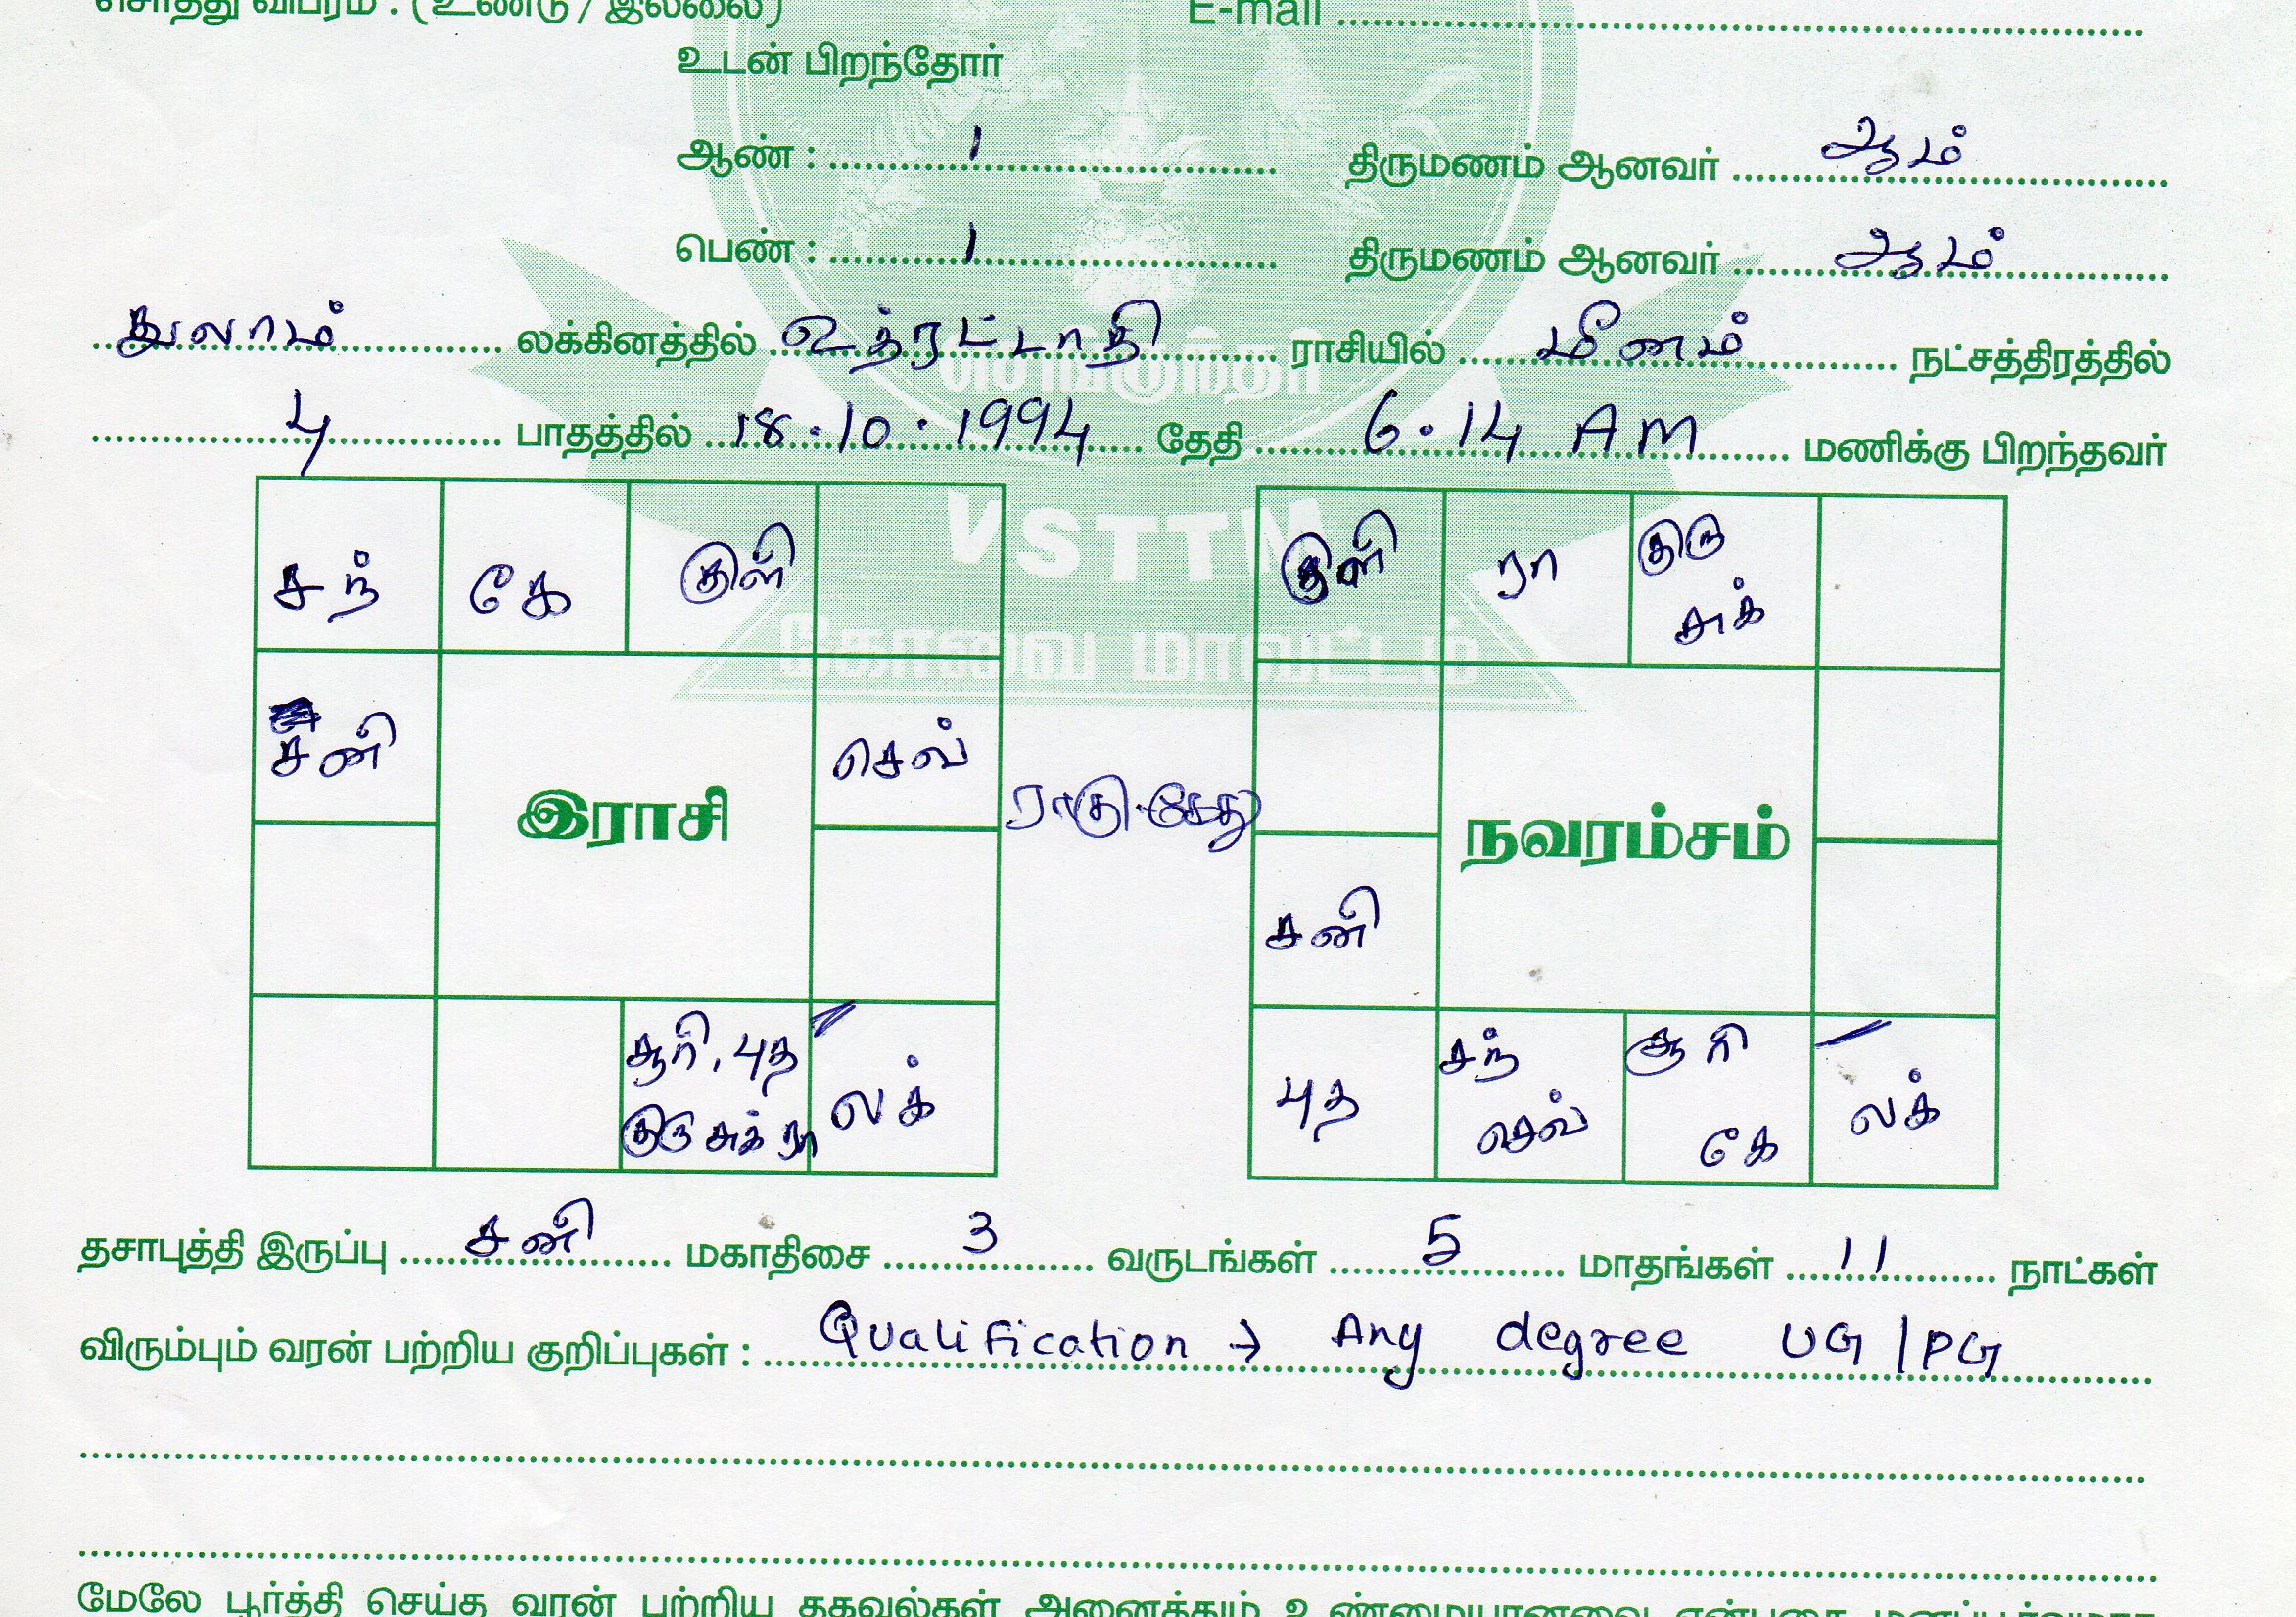 சொத்து விபரம் : (உண்டு / இல்லை) E-mail
உடன் பிறந்தோர்
ஆண் : 1 திருமணம் ஆனவர் ஆம்
பெண் : 1 திருமணம் ஆனவர் ஆம்
துலாம் லக்கினத்தில் உத்ரட்டாதி ராசியில் மீனம் நட்சத்திரத்தில்
4 பாதத்தில் 18.10.1994 தேதி 6.14 AM மணிக்கு பிறந்தவர்
VSTTM
கோவை மாவட்டம்
சந் கே குளி
சனி செவ்
இராசி
சூரி, புத
குரு சுக் ரா லக்
ராகு-கேது
குளி ரா குரு
சுக்
நவரம்சம்
சனி
புத சந் சூரி லக்
செவ் கே
தசாபுத்தி இருப்பு சனி மகாதிசை 3 வருடங்கள் 5 மாதங்கள் 11 நாட்கள்
விரும்பும் வரன் பற்றிய குறிப்புகள் : Qualification → Any degree UG / PG
மேலே பூர்த்தி செய்த வரன் பற்றிய தகவல்கள் அனைத்தும் உண்மையானவை என்பதை மனப்பூர்வமாக